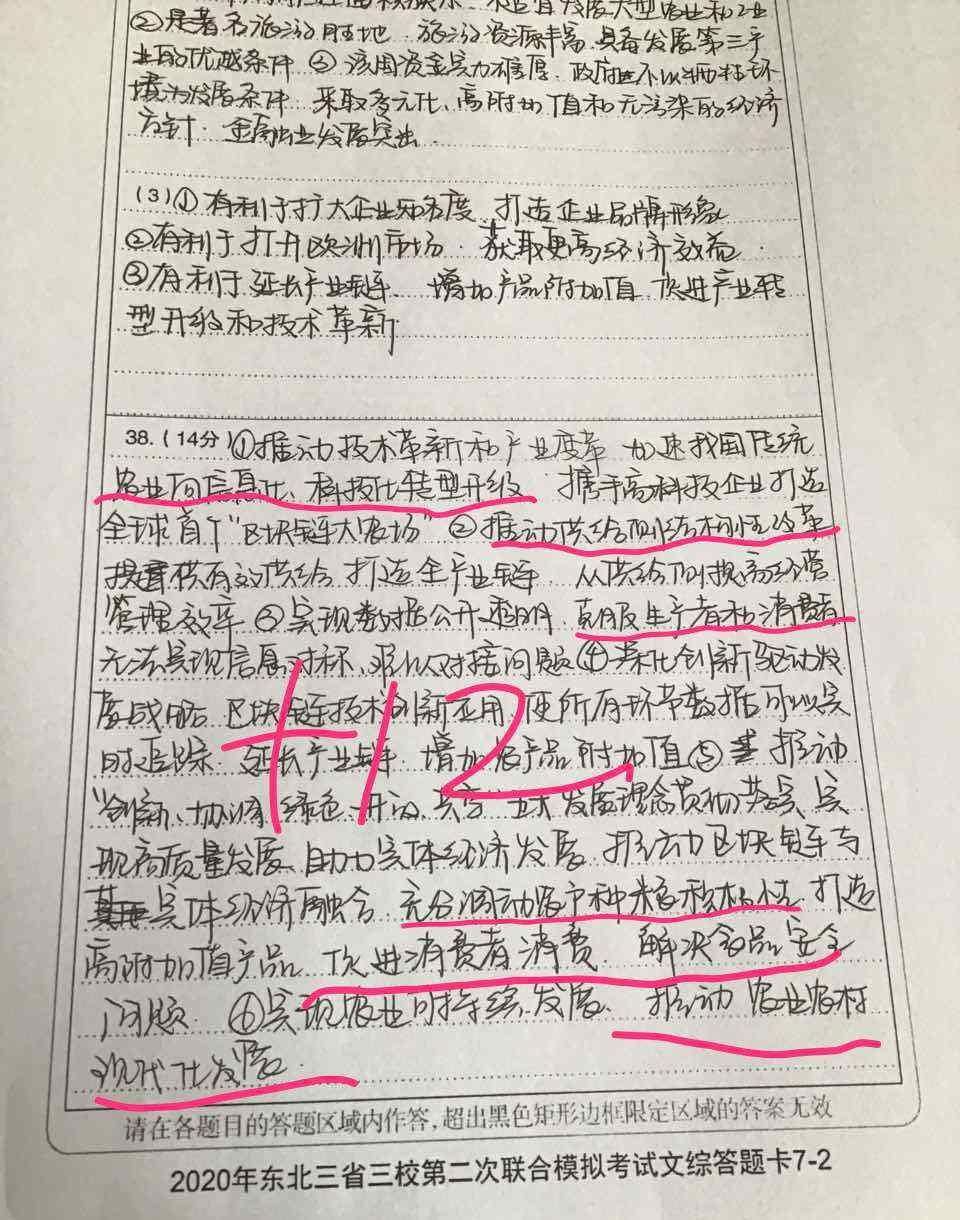 ②是著名旅游胜地 旅游资源丰富 具备发展第三产
业的优越条件 ③ 该国资金实力雄厚 政府并不以牺牲环
境为发展条件 采取多元化、高附加值和无污染的经济
方针 金融业发展突出
(3)①有利于扩大企业知名度 打造企业品牌形象
②有利于打开欧洲市场 获取更高经济效益
③有利于延长产业链 增加产品附加值 促进产业转
型升级和技术革新
38.(14分)①推动技术革新和产业变革 加速我国传统
农业向信息化、科技化转型升级 携手高科技企业打造
全球首个“区块链大农场” ②推动供给侧结构性改革
提供有效供给 打造全产业链 从供给侧提高经营
管理效率 ③实现数据公开透明 克服生产者和消费者
无法实现信息对称、难以对接问题 ④深化创新驱动发
展战略 区块链技术创新应用 使所有环节数据可以实
时追踪 延长产业链 增加农产品附加值 ⑤ 推动
“创新、协调、绿色、开放、共享”五大发展理念贯彻落实 实
现高质量发展 助力实体经济发展 推动区块链与
实体经济融合 充分调动农户种粮积极性 打造
高附加值产品 促进消费者消费 解决食品安全
问题 ⑥实现农业可持续发展 推动农业农村
现代化发展
+12
请在各题目的答题区域内作答，超出黑色矩形边框限定区域的答案无效
2020年东北三省三校第二次联合模拟考试文综答题卡7-2